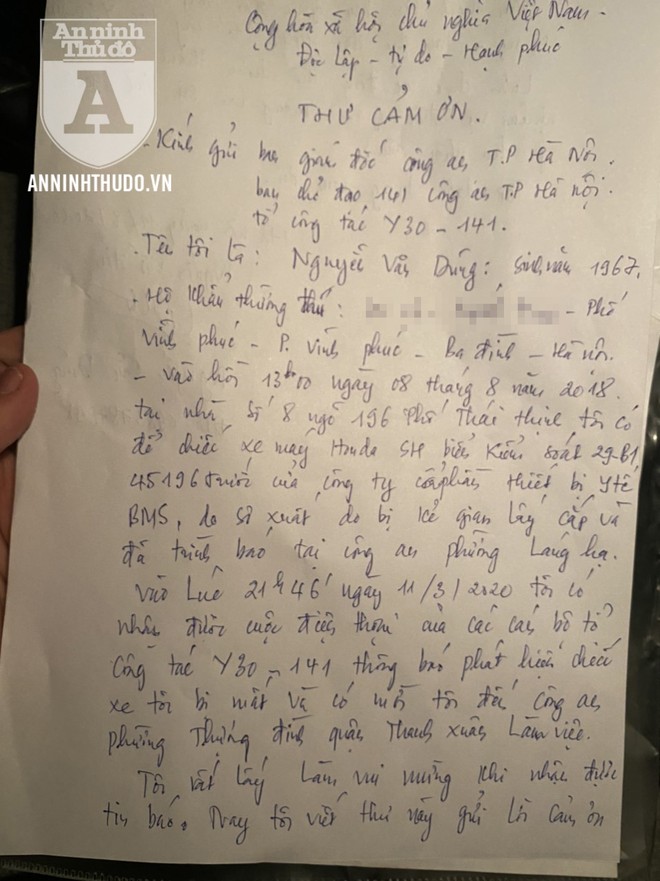 An ninh
Thủ đô
A
ANNINHTHUDO.VN
Cộng hòa xã hội chủ nghĩa Việt Nam.
Độc lập - tự do - Hạnh phúc
THƯ CẢM ƠN.
- Kính gửi ban giám đốc công an T.P Hà Nội.
ban chỉ đạo 141 công an T.P Hà Nội.
tổ công tác Y30 - 141.
. Tên tôi là: Nguyễn Văn Dũng: Sinh năm 1967.
. Hộ khẩu thường trú: - Phố
Vĩnh phúc - P. Vĩnh phúc - Ba đình - Hà Nội.
- vào hồi 13h00 ngày 08 tháng 8 năm 2018.
tại nhà số 8 ngõ 196 Phố Thái thịnh, tôi có
để chiếc xe máy Honda SH biển kiểm soát 29-B1
45196 trước cửa công ty cổ phần thiết bị y tế
BMS, do sơ xuất do bị kẻ gian lấy cắp và
đã trình báo tại công an phường Láng hạ.
vào lúc 21h46' ngày 11/3/2020 tôi có
nhận được cuộc điện thoại của các cán bộ tổ
Công tác Y30 - 141 thông báo phát hiện chiếc
xe tôi bị mất và có mời tôi đến công an
phường Thượng đình quận Thanh xuân làm việc.
Tôi rất lấy làm vui mừng khi nhận được
tin báo. Nay tôi viết thư này gửi lời cảm ơn